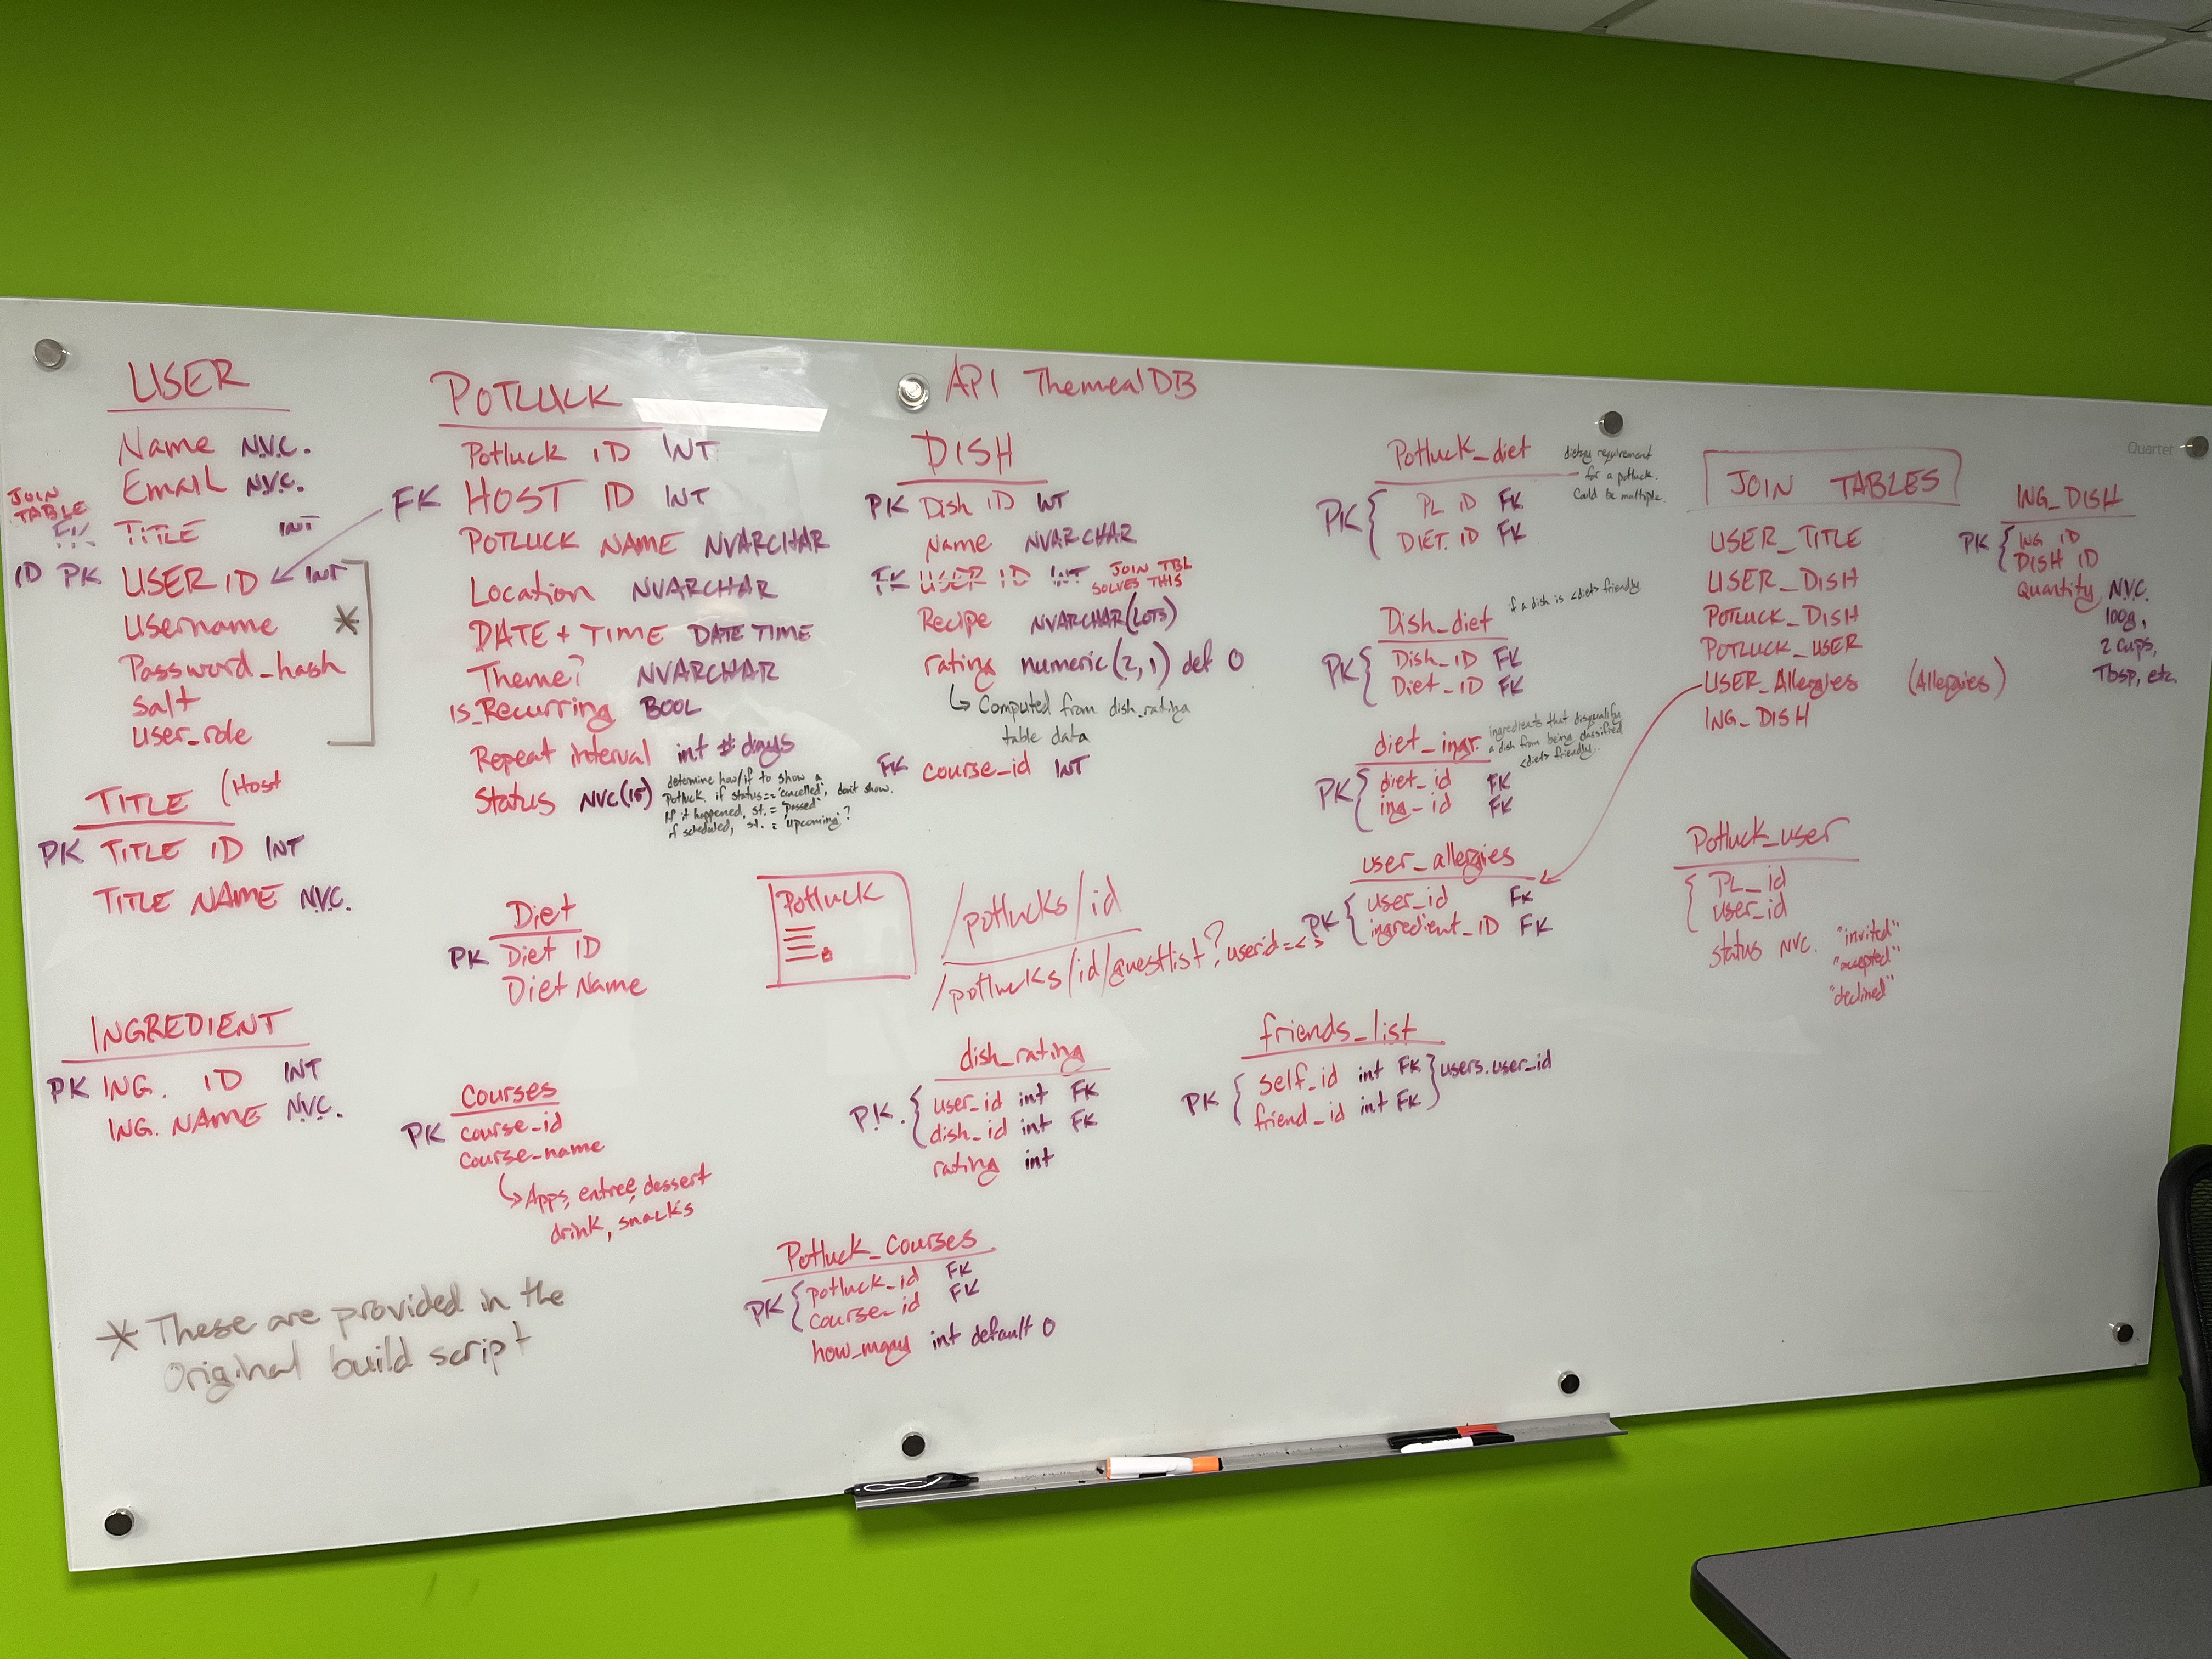 USER
Name N.V.C.
Email N.V.C.
JOIN TABLE
FK TITLE INT
ID PK USER ID INT
username
*
Password_hash
salt
user_role
TITLE (Host
PK TITLE ID INT
TITLE NAME N.V.C.
INGREDIENT
PK ING. ID INT
ING. NAME N.V.C.
* These are provided in the
original build script
POTLUCK
Potluck ID INT
FK HOST ID INT
POTLUCK NAME NVARCHAR
Location NVARCHAR
DATE + TIME DATETIME
Theme? NVARCHAR
is_Recurring BOOL
Repeat interval int # days
Status NVC(15)
determine how/if to show a
Potluck. if status == 'cancelled', don't show.
if it happened, st. = 'passed'
if scheduled, st. = 'upcoming'?
Diet
PK Diet ID
Diet Name
Courses
PK course_id
course_name
Apps, entree, dessert
drink, snacks
API ThemealDB
DISH
PK Dish ID INT
Name NVARCHAR
FK USER ID INT JOIN TBL
SOLVES THIS
Recipe NVARCHAR(LOTS)
rating numeric(2,1) def 0
Computed from dish_rating
table data
FK course_id INT
Potluck
/potlucks/id
/potlucks/id/guestlist?userid=< >
dish_rating
P.K. user_id int FK
dish_id int FK
rating int
Potluck_courses
PK potluck_id FK
course_id FK
how_many int default 0
Potluck_diet
dietary requirement
for a potluck.
Could be multiple.
PK PL ID FK
DIET. ID FK
Dish_diet
if a dish is <diet> friendly
PK Dish_ID FK
Diet_ID FK
diet_ingr.
ingredients that disqualify
a dish from being classified
<diet> friendly.
PK diet_id FK
ing_id FK
user_allergies
PK user_id FK
ingredient_ID FK
friends_list
PK self_id int FK users.user_id
friend_id int FK
JOIN TABLES
USER_TITLE
USER_DISH
POTLUCK_DISH
POTLUCK_USER
USER_Allergies (Allergies)
ING_DISH
Potluck_user
PL_id
user_id
status NVC. "invited"
"accepted"
"declined"
Quartet
ING_DISH
PK ING ID
DISH ID
Quantity N.V.C.
100g,
2 cups,
Tbsp, etc.